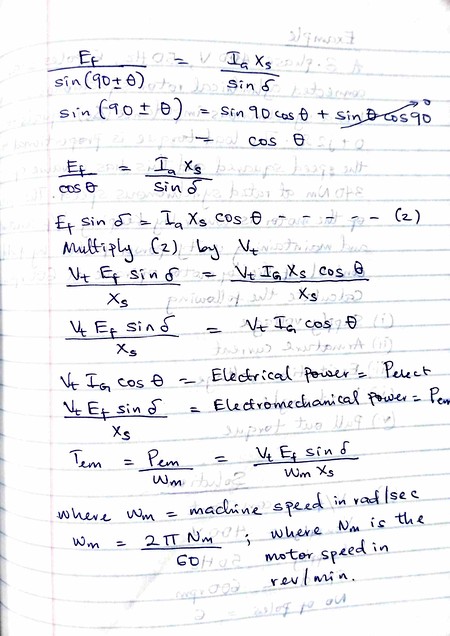 E_f / sin(90±θ) = I_a X_s / sin δ
sin(90 ± θ) = sin 90 cos θ + sin θ cos 90 → 0
= cos θ
E_f / cos θ = I_a X_s / sin δ
E_f sin δ = I_a X_s cos θ - - - - - - (2)
Multiply (2) by V_t
V_t E_f sin δ / X_s = V_t I_a X_s cos θ / X_s
V_t E_f sin δ / X_s = V_t I_a cos θ
V_t I_a cos θ = Electrical power = Pelect
V_t E_f sin δ / X_s = Electromechanical power = Pem
T_em = P_em / ω_m = V_t E_f sin δ / ω_m X_s
where ω_m = machine speed in rad/sec
ω_m = 2 π N_m / 60 ; where N_m is the
motor speed in
rev/min.